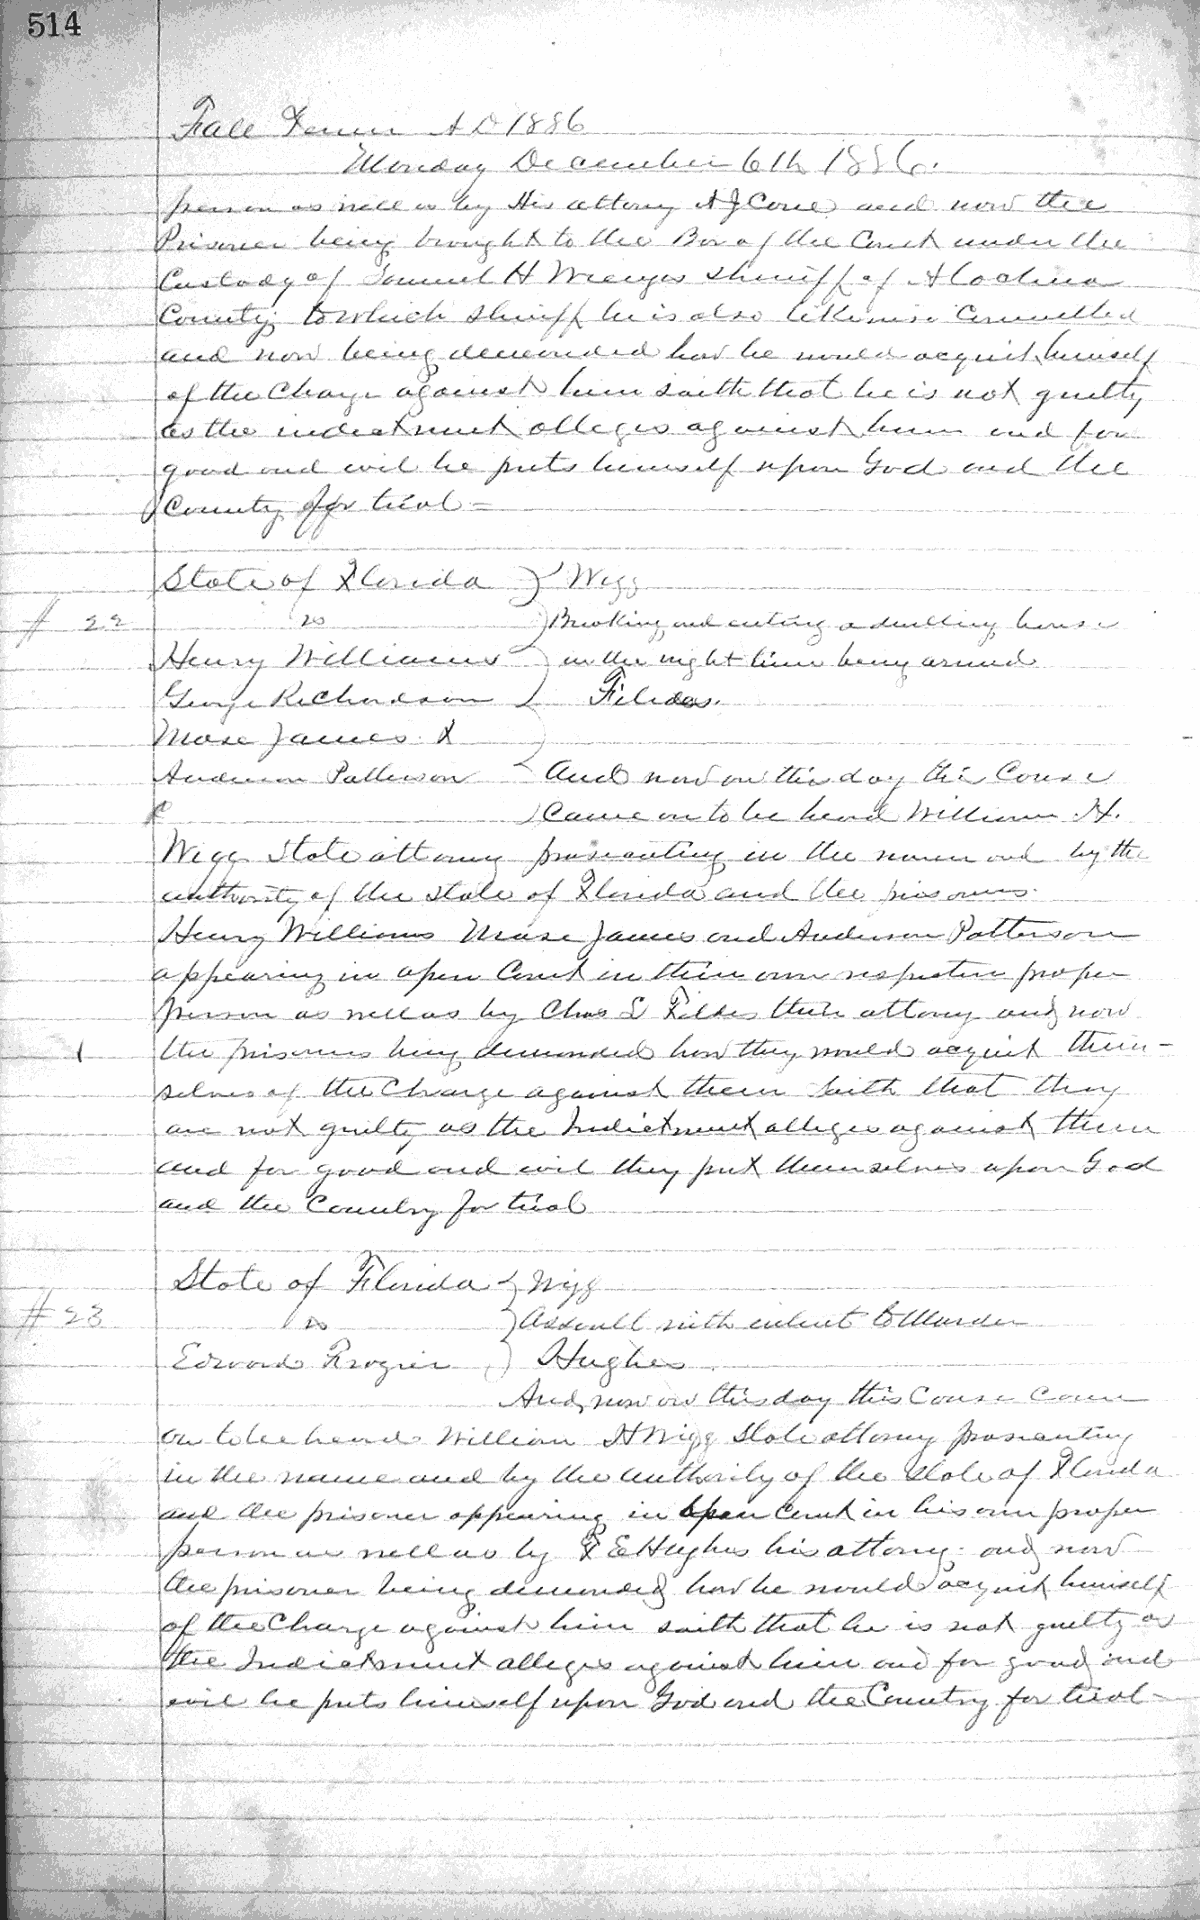 514
Fall Term A D 1886
Monday December 6th 1886.
person as well as by His attorny A J Cone and now the
Prisoner being brought to the Bar of the Court under the
Custody of Samuel H Wienges Sheriff of Alachua
County to which Sheriff he is also likewise Committed
and now being demanded how he would acquit himself
of the Charge against him saith that he is not guilty
as the indictment alleges against him and for
good and evil he puts himself upon God and the
County for trial =
State of Florida } Wigg
# 22 vs } Breaking and entring a dwelling house
Henry Williams } in the night time being armed
George Richardson } Fildes.
Mose James &
Anderson Patterson } And now on this day this Cause
Came on to be heard William H.
Wigg State attorny prosecuting in the name and by the
authority of the State of Florida and the prisoners
Henry Williams Mose James and Anderson Patterson
appearing in open Court in their own respective proper
person as well as by Chas L Fildes their attorny and now
the prisoners being demanded how they would acquit them-
selves of the Charge against them saith that they
are not guilty as the Indictment alleges against them
and for good and evil they put themselves upon God
and the Country for trial
State of Florida } Wigg
# 23 vs } Assault with intent to Murder
Edward Frazier } Hughes
And now on this day this Cause Came
on to be heard William H Wigg State attorny prosecuting
in the name and by the authority of the State of Florida
and the prisoner appearing in Open Court in his own proper
person as well as by F E Hughes his attorny and now
the prisoner being demanded how he would acquit himself
of the Charge against him saith that he is not guilty as
the Indictment alleges against him and for good and
evil he puts himself upon God and the Country for trial -